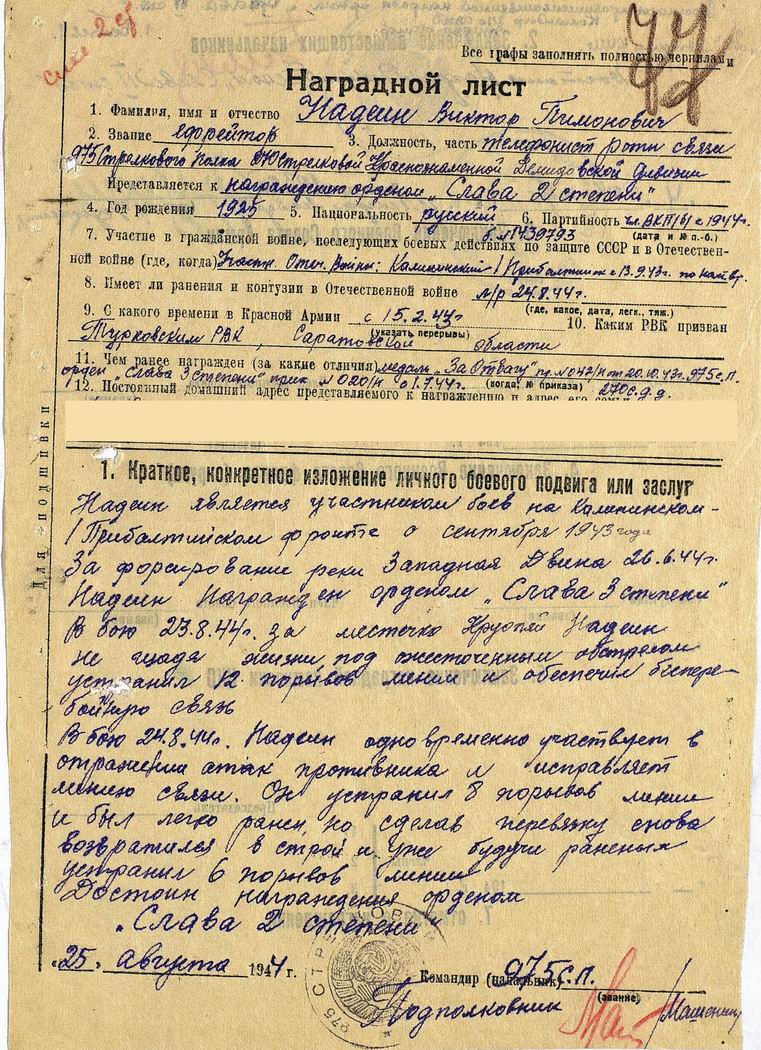 слав 2й
77
Все графы заполнять полностью чернилами
Наградной лист
1. Фамилия, имя и отчество Надеин Виктор Пимонович
2. Звание ефрейтор 3. Должность, часть телефонист роты связи
975 Стрелкового полка 270 Стрелковой Краснознаменной Демидовской дивизии
Представляется к награждению орденом „Слава 2 степени"
4. Год рождения 1925 5. Национальность русский 6. Партийность чл. ВКП(б) с 1944г.
б. №1439793 (дата и № п.-б.)
7. Участие в гражданской войне, последующих боевых действиях по защите СССР и в Отечествен-
ной войне (где, когда) Участн. Отеч. Войны: Калининский 1 Прибалтийск с 13.9.43г. по наст. вр.
8. Имеет ли ранения и контузии в Отечественной войне л/р 24.8.44г.
(где, какое, дата, легк., тяж.)
9. С какого времени в Красной Армии с 15.2.43г 10. Каким РВК призван
(указать перерывы)
Турковским РВК, Саратовской области
11. Чем ранее награжден (за какие отличия) медаль „За Отвагу" пр. №042/н от 20.10.43г. 975с.п.
орден „Слава 3 степени" прик №020/н о 1.7.44г. (когда, № приказа) 270с.д.
12. Постоянный домашний адрес представляемого к награждению и адрес его семьи
Для подшивки
1. Краткое, конкретное изложение личного боевого подвига или заслуг
Надеин является участником боев на Калининском-
1 Прибалтийском фронте с сентября 1943 года
За форсирование реки Западная Двина 26.6.44г.
Надеин Награжден орденом „Слава 3 степени"
В бою 23.8.44г. за местечко Надеин
не щадя жизни, под ожесточенным обстрелом
устранил 12 порывов линии и обеспечил беспере-
бойную связь
В бою 24.8.44г. Надеин одновременно участвует в
отражении атак противника и исправляет
линию связи. Он устранил 8 порывов линии
и был легко ранен, но сделав перевязку снова
возвратился в строй и уже будучи раненым
устранил 6 порывов линии
Достоин награждения орденом
„Слава 2 степени
„25" августа 1944 г.
Командир (начальник) 975с.п.
(звание)
Подполковник /Машенин/
975 СТРЕЛКОВЫЙ